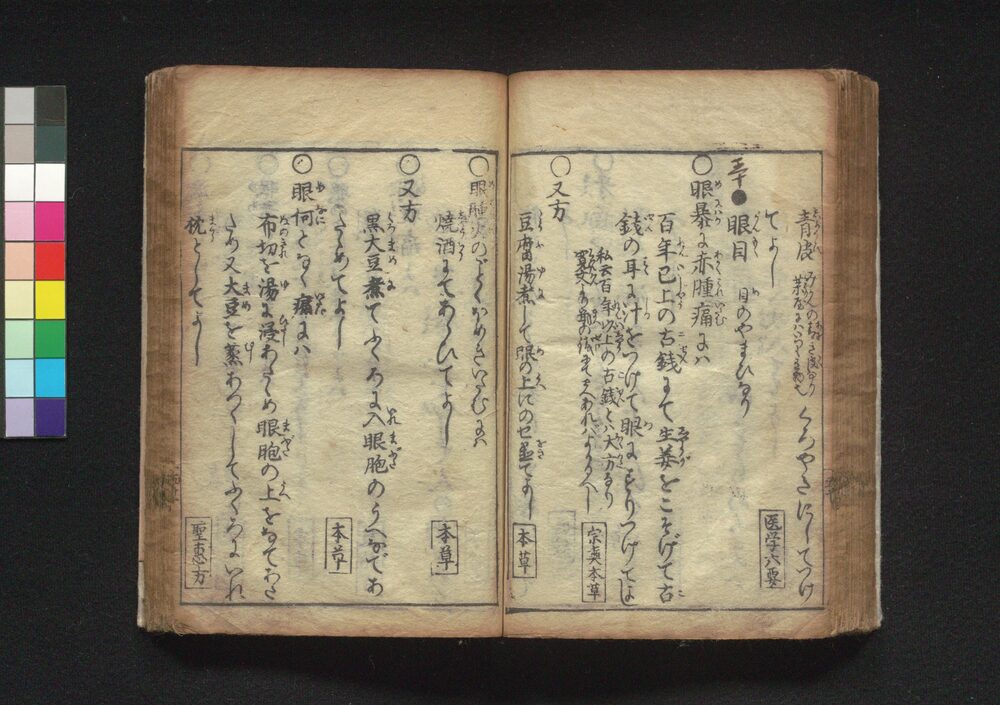 青皮 くろやきにしてつけ
てよし 医学六要
五十● 眼目 目のやまひなり
○眼暴に赤腫痛には
百年已上の古銭にて生姜をこそげて古
銭の耳に汁をつけて眼にすりつけてよし
私云百年以上の古銭とハ大方なり
宗奭本草
○又方
豆腐湯煮して眼の上にのせ置てよし 本草
○眼腫火のごとくほめきいたむには
焼酒にてあらひてよし 本草
○又方
黒大豆煮てふくろに入眼胞のうへなであ
たためてよし 本草
○眼何となく痛には
布切を湯に浸あたため眼胞の上をなであた
ため又大豆を蒸あつくしてふくろにいれ
枕としてよし 聖恵方